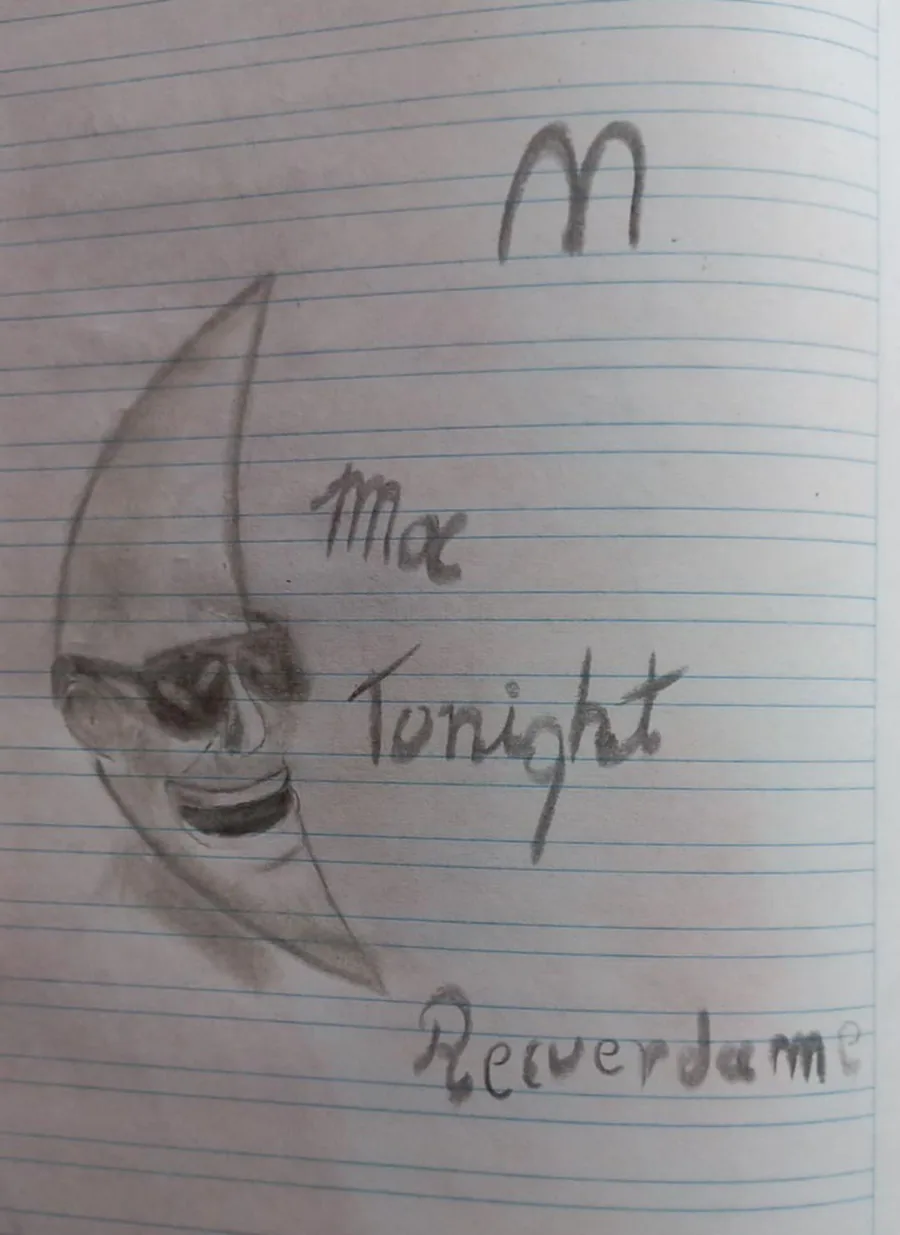 M
Mac
Tonight
Recuerdame